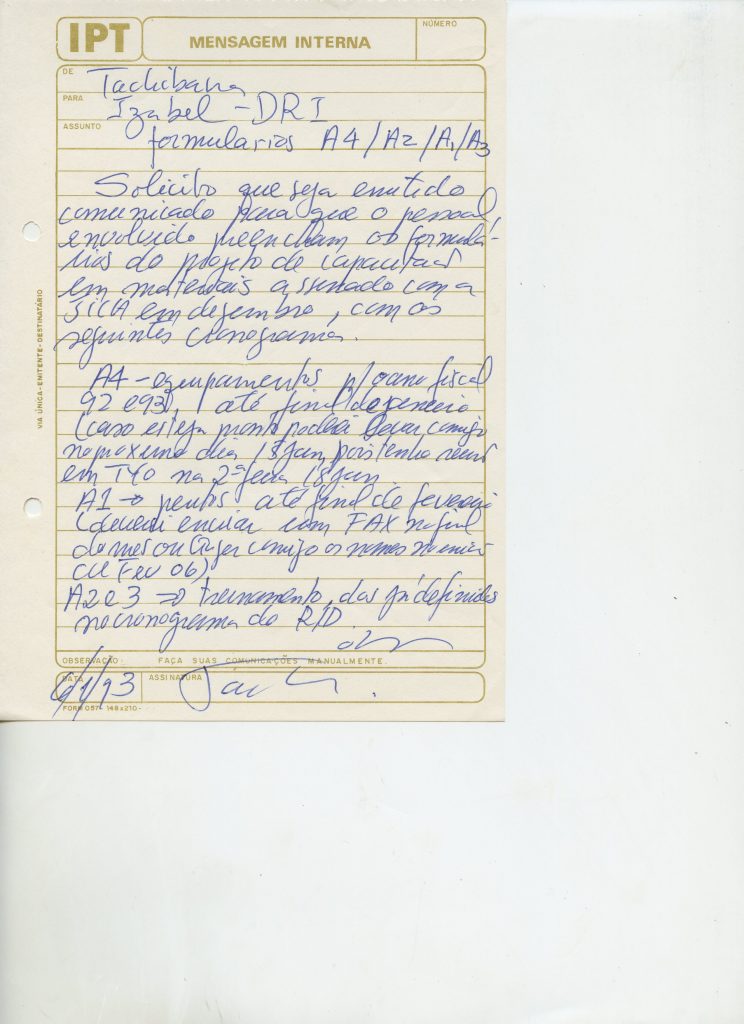 IPT
MENSAGEM INTERNA
NÚMERO
DE Tachibana
PARA Izabel - DRI
ASSUNTO formularios A4/A2/A1/A3
Solicito que seja emitido
comunicado para que o pessoal
envolvido preencham os formulá-
rios do projeto de capacitação
em materiais assinado com a
JICA em dezembro, com os
seguintes cronogramas.
A4 - equipamentos p/ o ano fiscal
92 e 93), até final de janeiro
(caso esteja pronto poderei levar comigo
no proximo dia 15 jan, pois tenho
em TYO na 2ª feira 18 jan
A1 → peritos até final de fevereiro
(deverei enviar com FAX no final
do mes ou comigo os nomes
Fev 06)
A2 e 3 → treinamento, das já definidas
no cronograma do R/D.
OBSERVAÇÃO: FAÇA SUAS COMUNICAÇÕES MANUALMENTE.
DATA 6/1/93
ASSINATURA
FORM 057 - 148x210 -
VIA ÚNICA-EMITENTE-DESTINATÁRIO